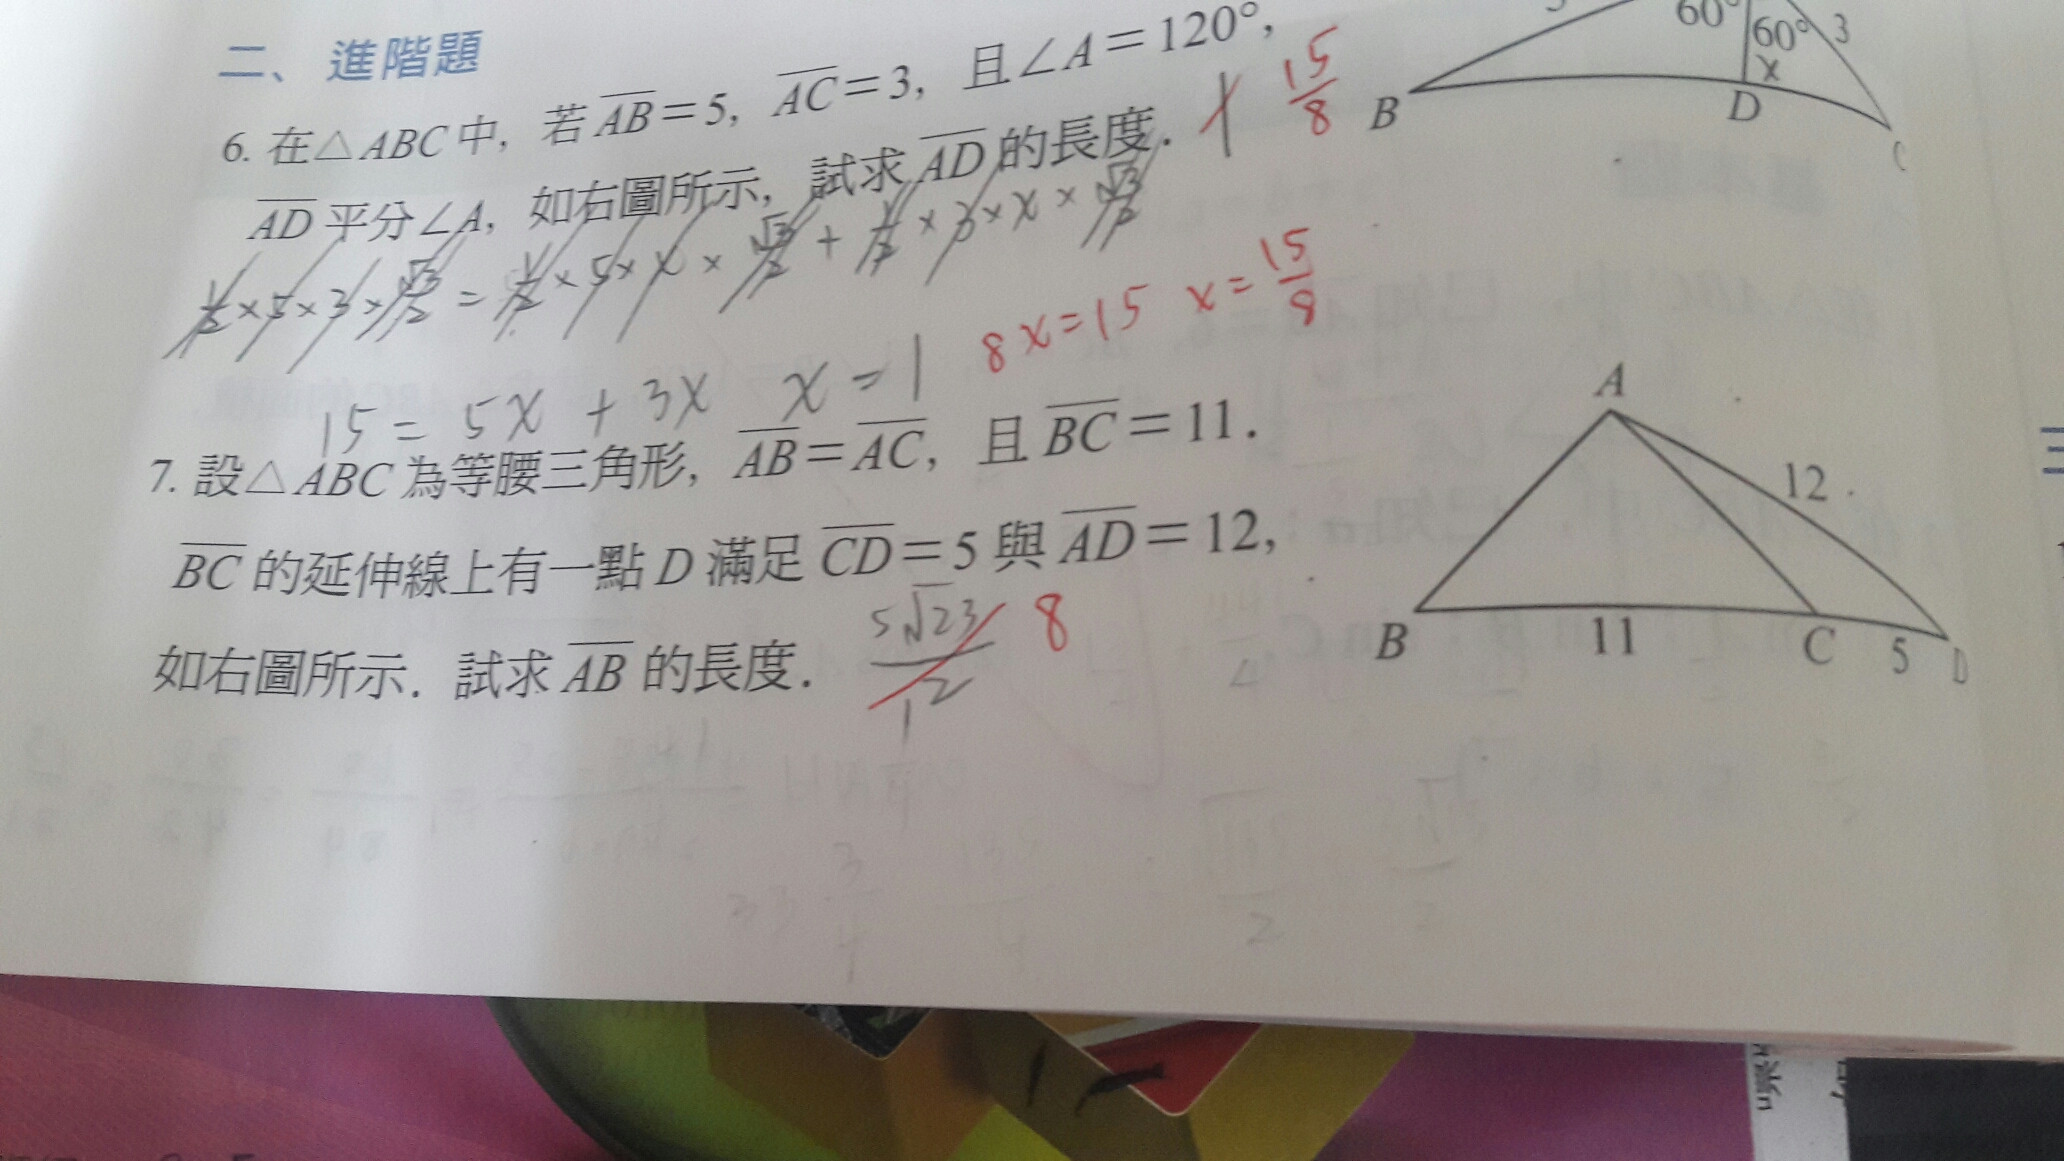 二、進階題
6. 在△ABC中, 若AB=5, AC=3, 且∠A=120°,
AD平分∠A, 如右圖所示, 試求AD的長度. 1 15/8
1/2×5×3×√3/2=1/2×5×x×√3/2+1/2×3×x×√3/2
15=5x+3x x=1 8x=15 x=15/8
60° 60° 3
x
B D C
7. 設△ABC為等腰三角形, AB=AC, 且BC=11.
BC的延伸線上有一點D滿足CD=5與AD=12,
如右圖所示. 試求AB的長度. 5√23/12 8
A
12
B 11 C 5 D